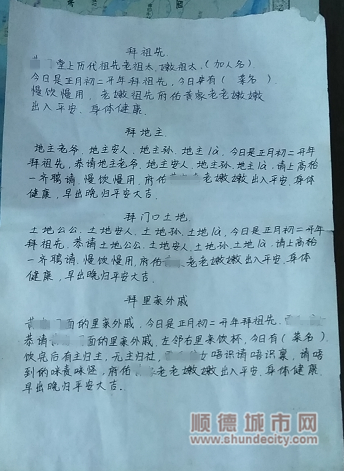 拜祖先
堂上历代祖先老祖太,嫩祖太,(加人名)
今日是正月初二开年拜祖先,今日有(菜名)
慢饮慢用,老嫩祖先府佑黄家老老嫩嫩
出入平安,身体健康,
拜地主
地主老爷,地主安人,地主孙,地主仔,今日是正月初二开年
拜祖先,恭请地主老爷,地主安人,地主孙,地主仔,请上高抬
一齐聘请,慢饮慢用,府佑老老嫩嫩出入平安,身体
健康,早出晚归平安大吉,
拜门口土地,
土地公公,土地安人,土地孙,土地仔,今日是正月初二开年
拜祖先,恭请土地公公,土地安人,土地孙,土地仔,请上高抬
一齐聘请,慢饮慢用,府佑老老嫩嫩出入平安,身体
健康,早出晚归平安大吉,
拜里家外戚
面的里家外戚,今日是正月初二开年拜祖先,
恭请面的里家外戚,左邻右里来饮杯,今日有(菜名)
饮完后有主归主,无主归灶,女唔识请唔识裹,请唔
到的咪责咪怪,府佑老老嫩嫩出入平安,身体健康
早出晚归平安大吉.
顺德城市网
www.shundecity.com